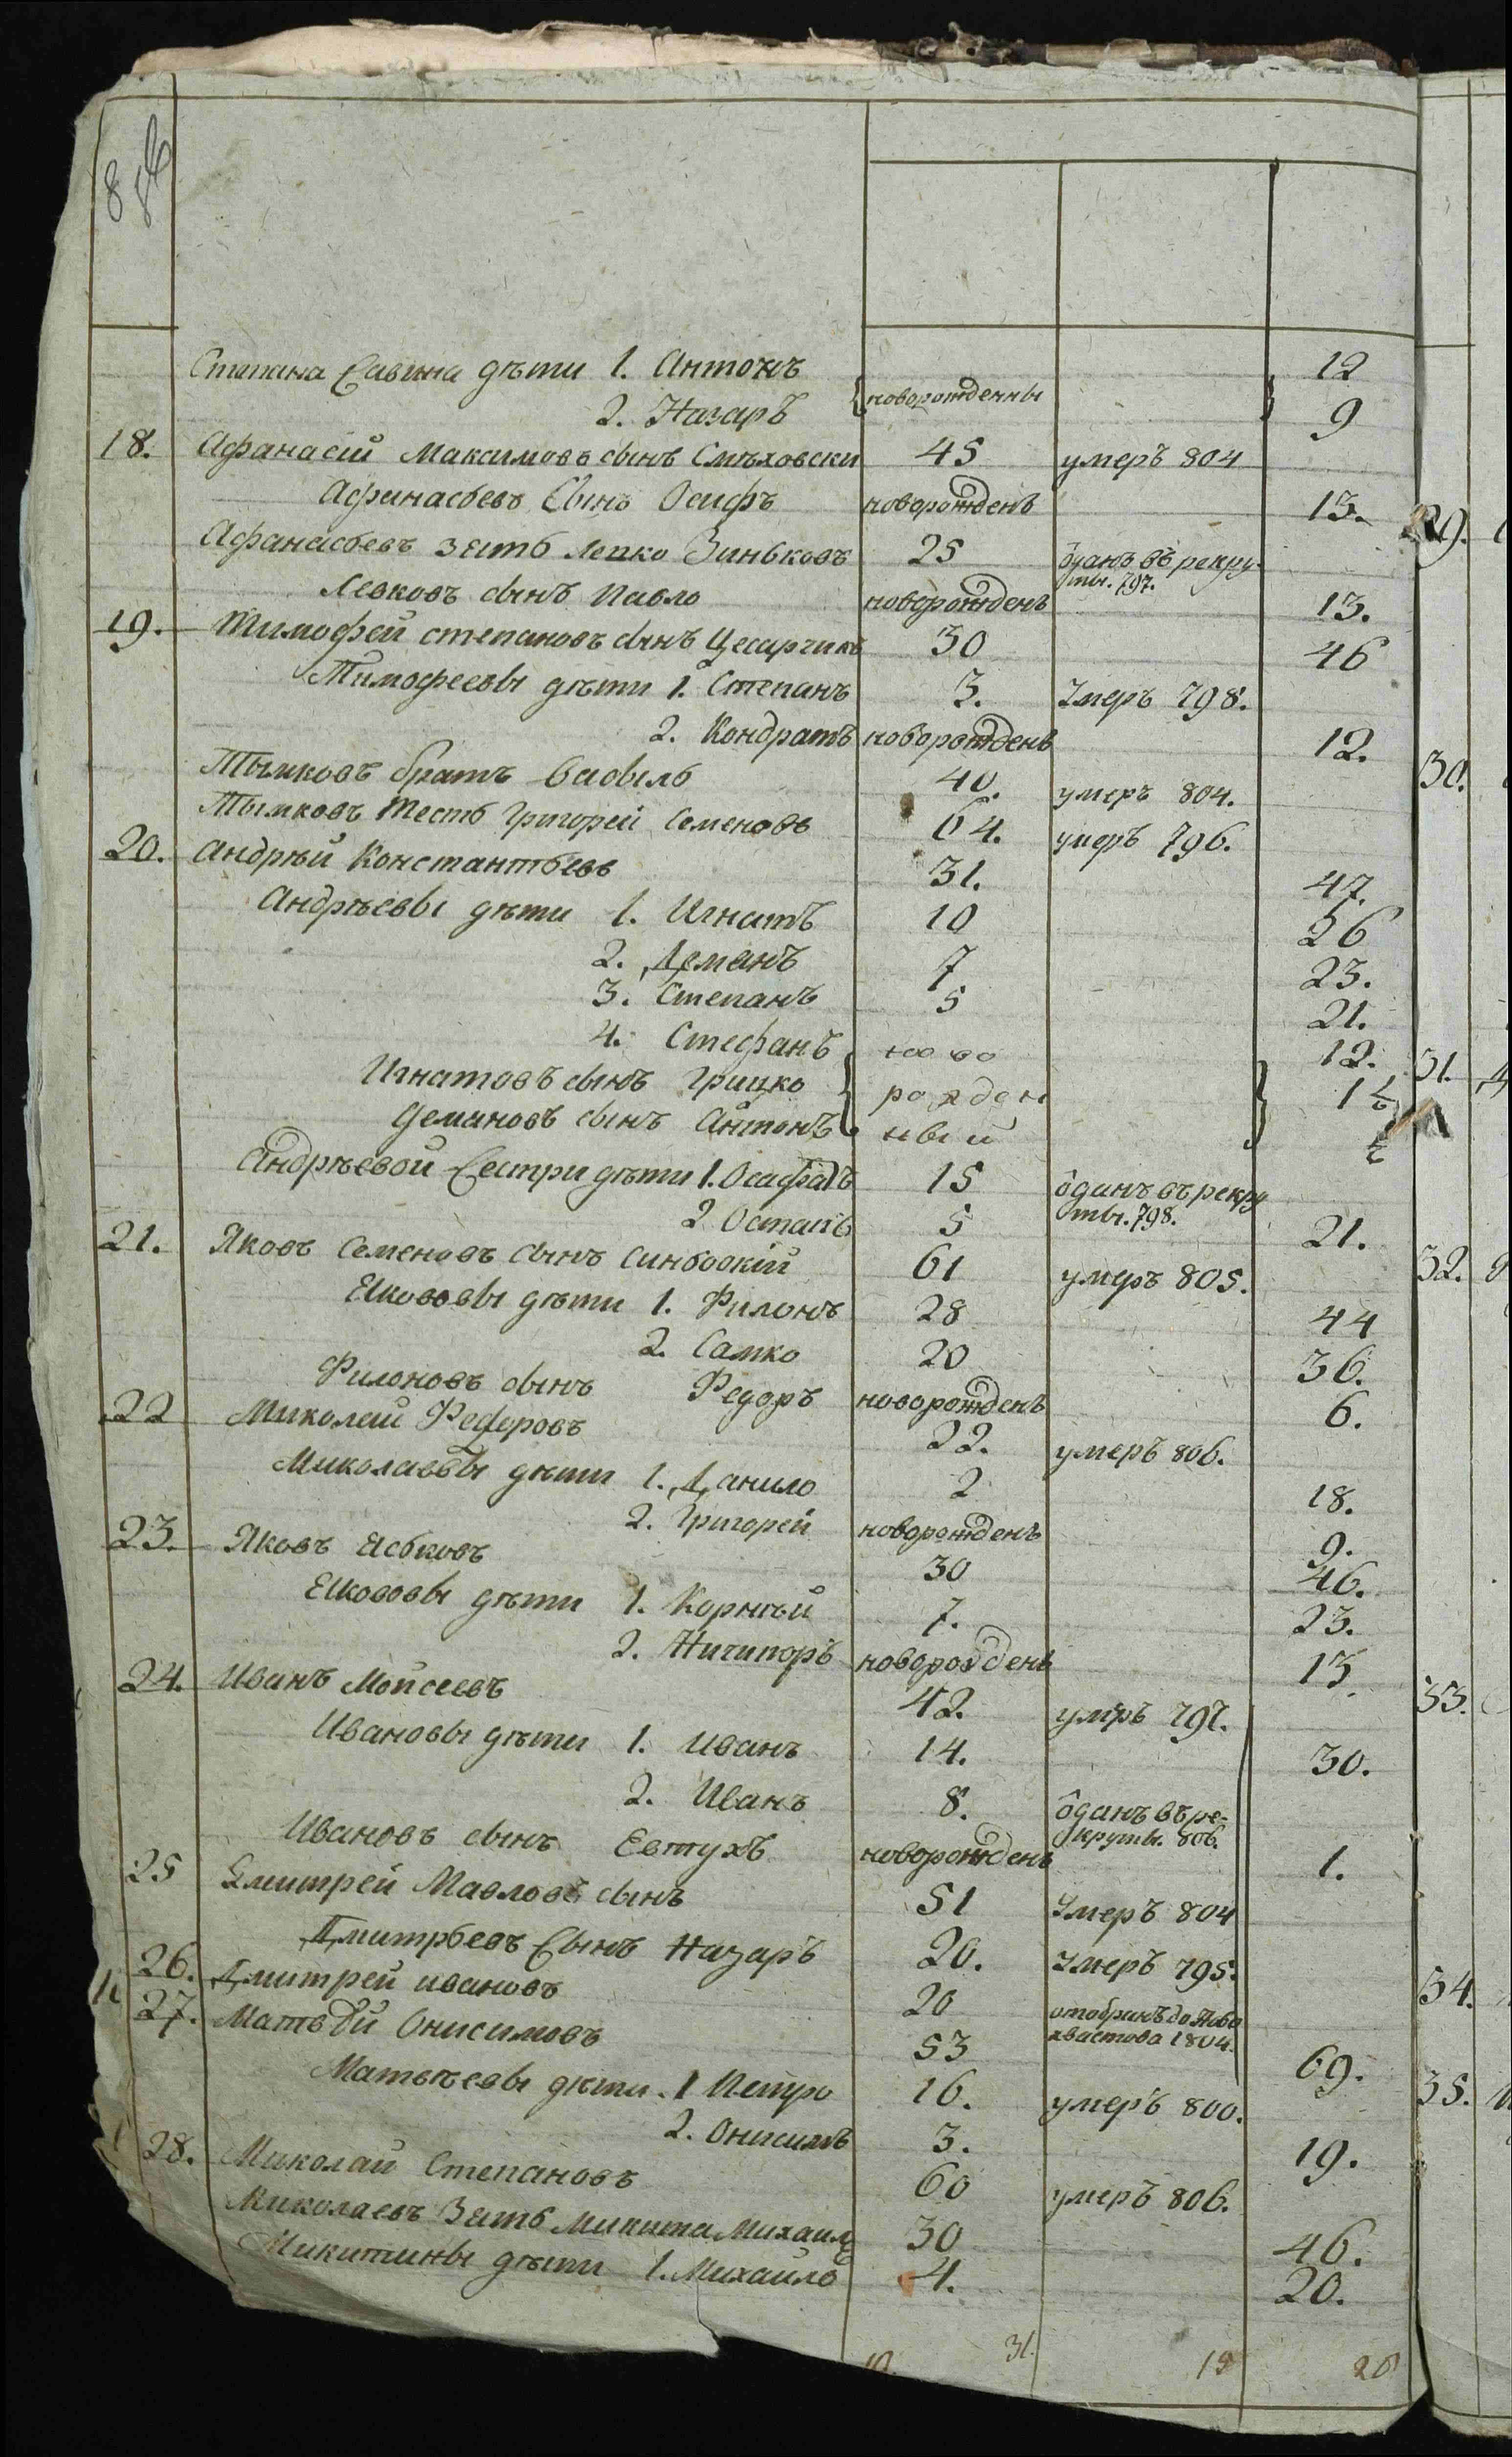 Степана Савина дѣти 1. Антонъ 12
2. Назаръ новорожденны 9
18. Афанасій Максимовъ сынъ Смѣховски 45 умеръ 804
Афанасьевъ Сынъ Осифъ новорожденъ 13.
Афанасьевъ зять Левко Зиньковъ 25 ѿданъ въ рекру-
ты. 797.
Левковъ сынъ Павло новорожденъ 13.
19. Тимофей степановъ сынъ Цесарчикъ 30 46
Тимофеевы дѣти 1. Степанъ 3. Умеръ 798.
2. Кондратъ новорожденъ 12.
Тымковъ братъ Василь 40. умеръ 804.
Тымковъ Тесть Григорей Семеновъ 64. умеръ 796.
20. Андрѣй Константьевъ 31. 47.
Андрѣевы дѣти 1. Игнатъ 10 26
2. Деманъ 7 23.
3. Степанъ 5 21.
4. Стефанъ ново 12.
Игнатовъ сынъ Грицко рожден 1½
Демановъ сынъ Антонъ ный ½
Андрѣевой Сестри дѣти 1. Осафатъ 15 ѿданъ въ рекру
ты. 798.
2 Остапъ 5 21.
21. Яковъ Семеновъ сынъ Синбоокій 61 умеръ 805.
Якововы дѣти 1. Филонъ 28 44
2. Самко 20 36.
Филоновъ сынъ Федоръ новорожденъ 6.
22 Миколай Федоровъ 22. умеръ 806.
Миколаевы дѣти 1. Данило 2 18.
2. Григорей новорожденъ 9.
23. Яковъ Яськовъ 30 46.
Якововы дѣти 1. Корнѣй 7. 23.
2. Ничипоръ новорожденъ 13.
24. Иванъ Мойсеевъ 42. умръ 797.
Ивановы дѣти 1. Иванъ 14. 30.
2. Иванъ 8. ѿданъ въ ре-
круты. 806.
Ивановъ сынъ Евтухъ новорожденъ 1.
25 Дмитрей Павловъ сынъ 51 Умеръ 804
Дмитрьевъ Сынъ Назаръ 20. Умеръ 795.
26. Дмитрей ивановъ 20 отобранъ до Ново
хвастова 1804.
27. Матвѣй Онисимовъ 53 69.
Матвѣевы дѣти. 1 Петро 16. умеръ 800.
2. Онисимъ 3. 19.
28. Миколай Степановъ 60 умеръ 806.
Миколаевъ Зять Микита Михайл 30 46.
Микитины дѣти 1. Михайло 4. 20.
31. 19 28
29.
30.
31.
32.
33.
34.
35.